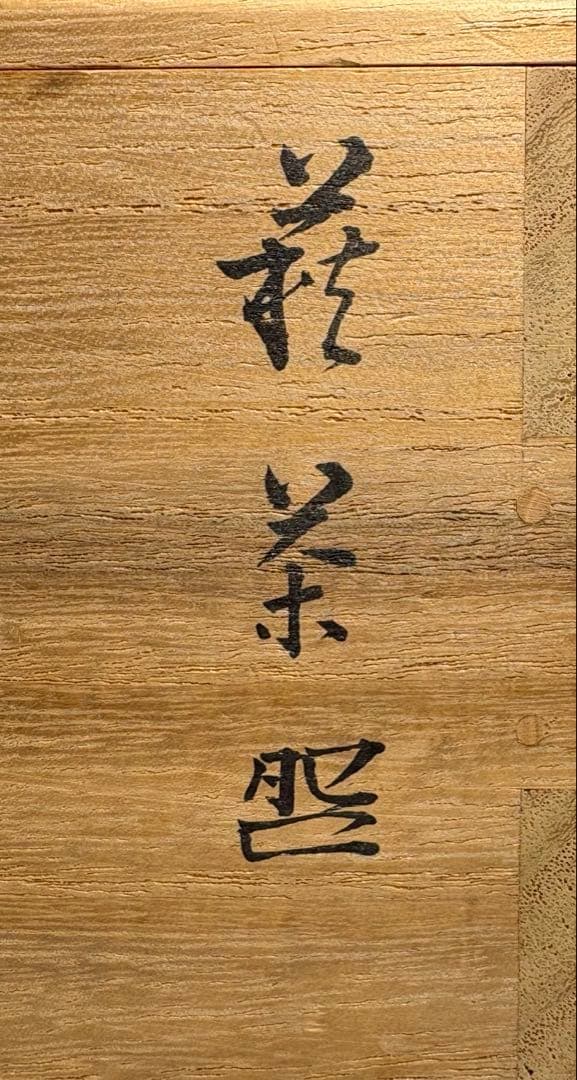 萩茶碗